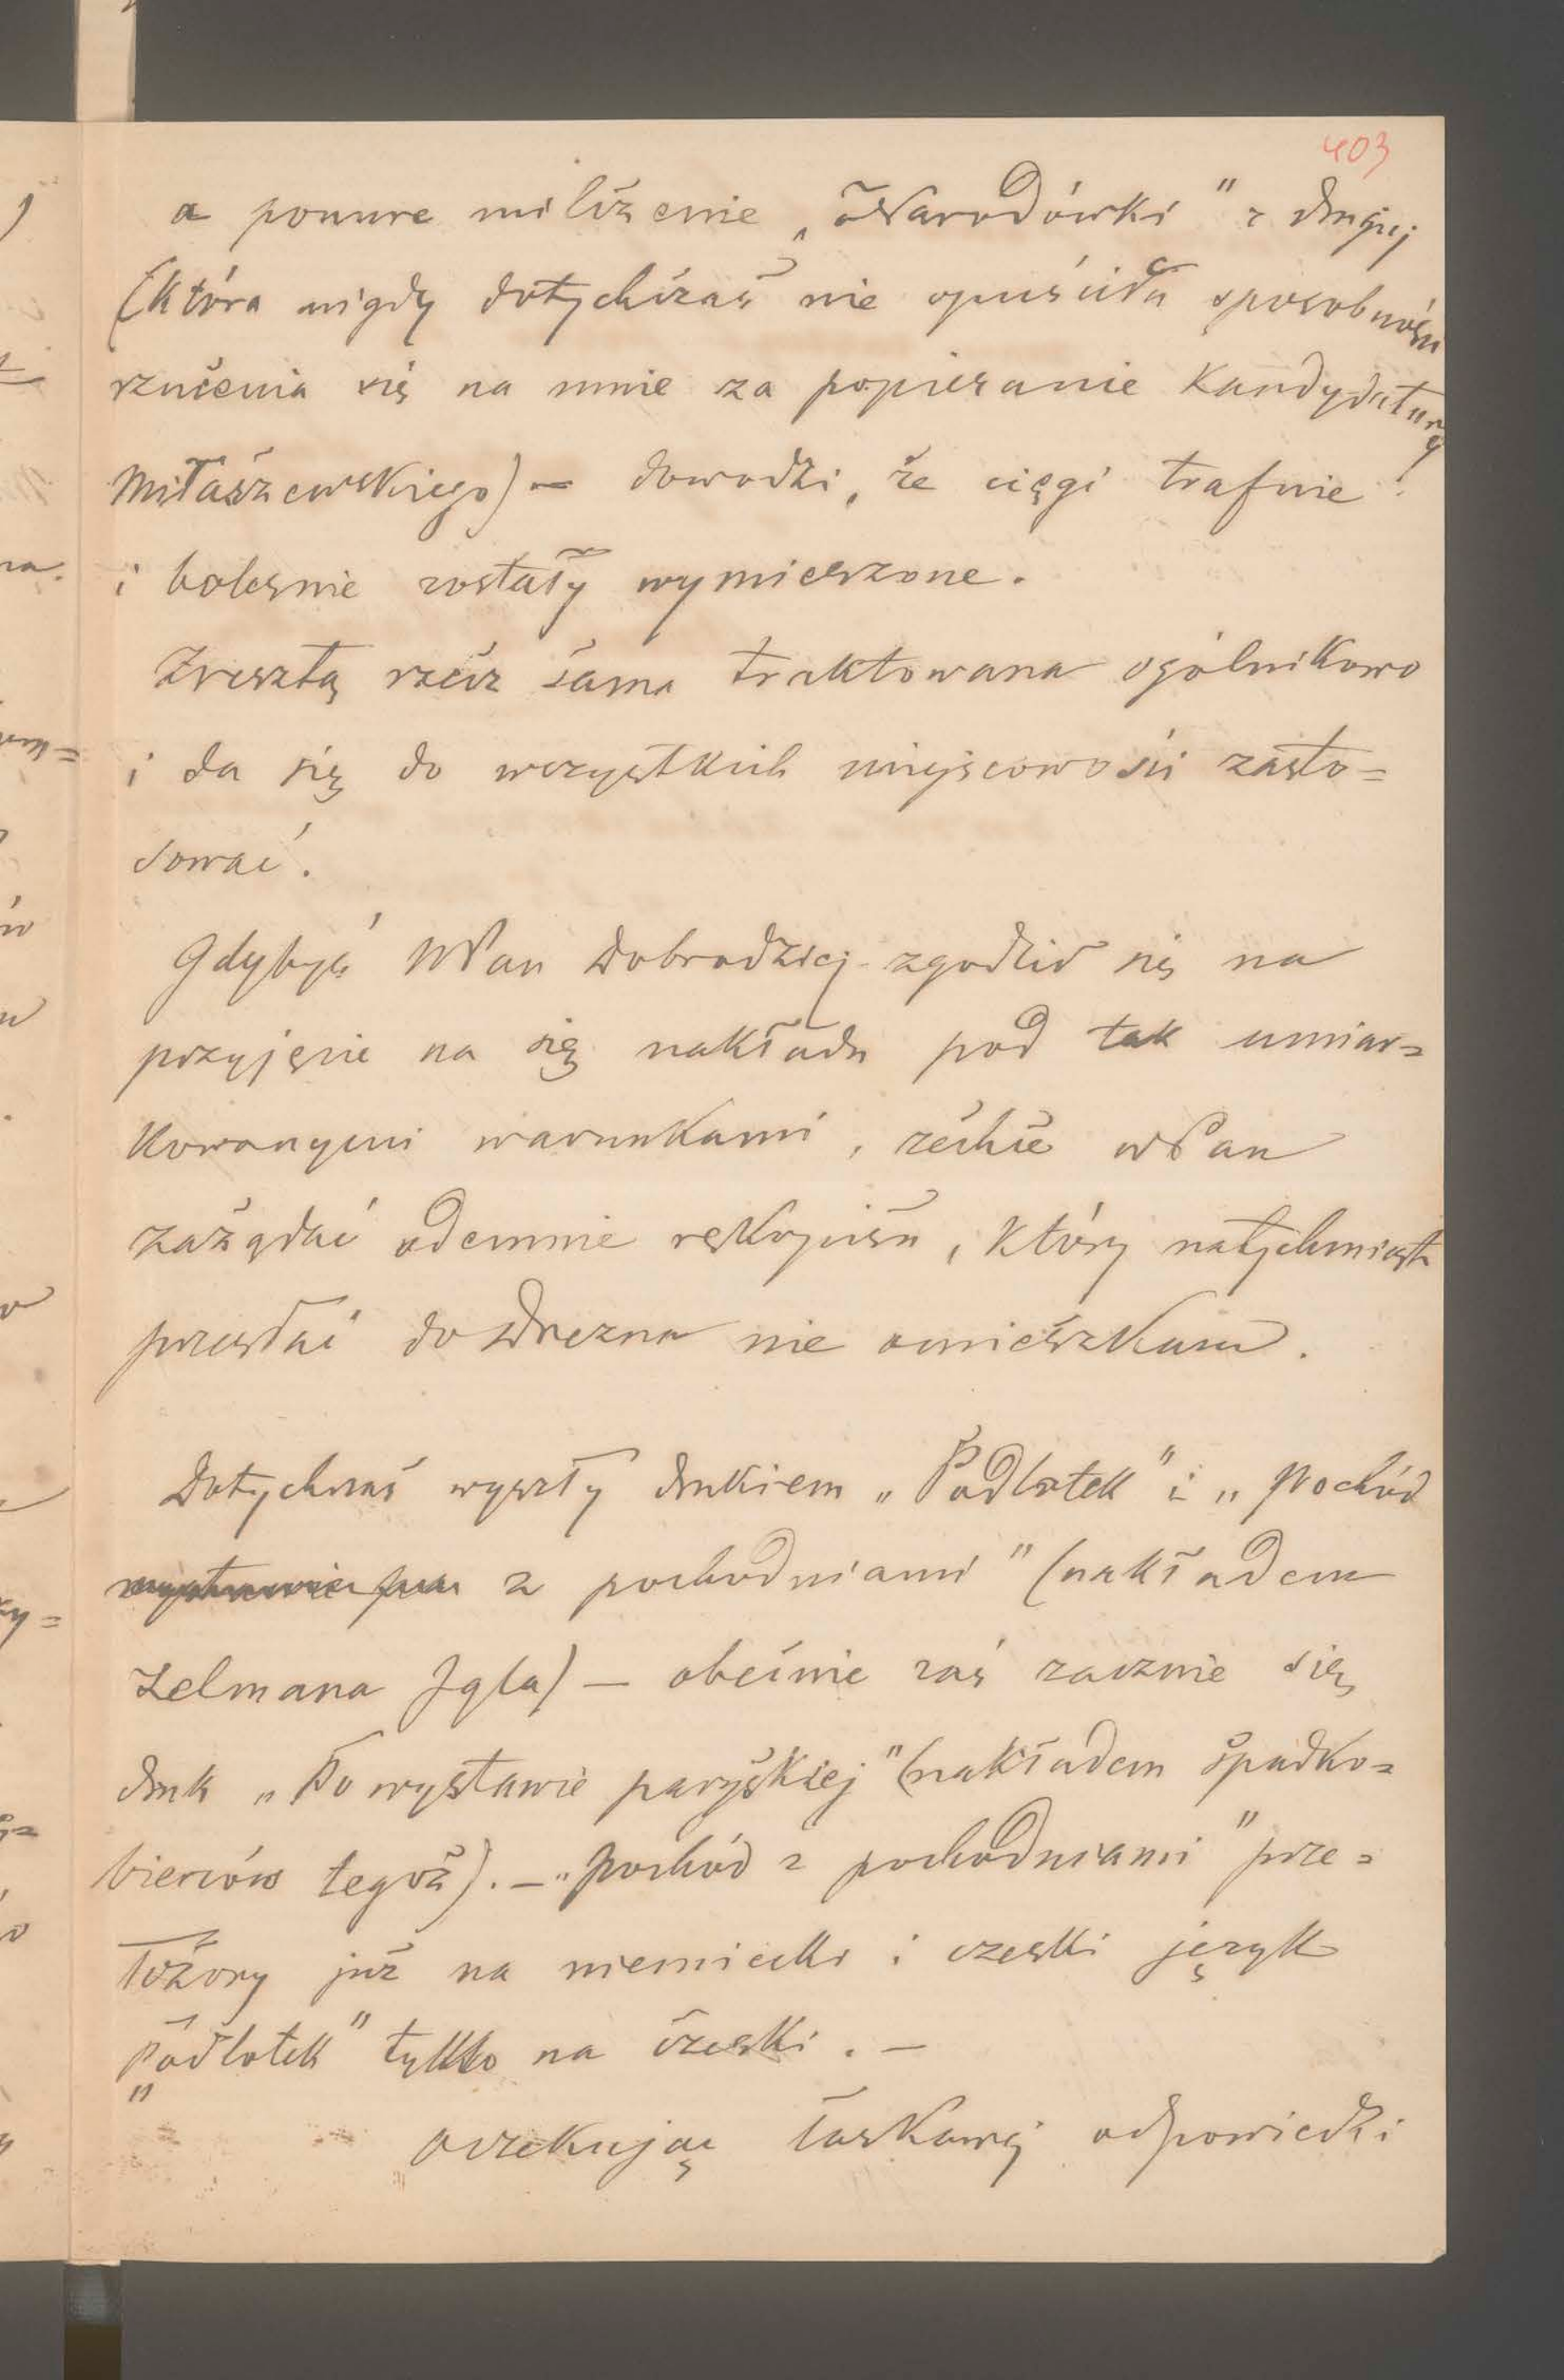 403
a ponure milczenie „Narodówki" z drugiej
(która nigdy dotychczas nie opuściła sposobności
rzucenia się na mnie za popieranie kandydatury
Miłaszewskiego) — dowodzi, że cięgi trafnie
i boleśnie zostały wymierzone.
Zresztą rzecz sama traktowana ogólnikowo
i da się do wszystkich miejscowości zasto=
sować.
Gdybyś WPan Dobrodziej zgodził się na
przyjęcie na się nakładu pod tak umiar=
kowanymi warunkami, zechce WPan
zażądać odemnie rękopisu, który natychmiast
przesłać do Drezna nie omieszkam.
Dotychczas wyszły drukiem „Podlotek" i „Pochód
z pochodniami" (nakładem
Zelmana Igla) — obecnie zaś zacznie się
druk „Po wystawie paryskiej" (nakładem spadko=
bierców tegoż). — „Pochód z pochodniami" prze=
łożony już na niemiecki i czeski język
„Podlotek" tylko na czeski. —
Oczekując łaskawej odpowiedzi